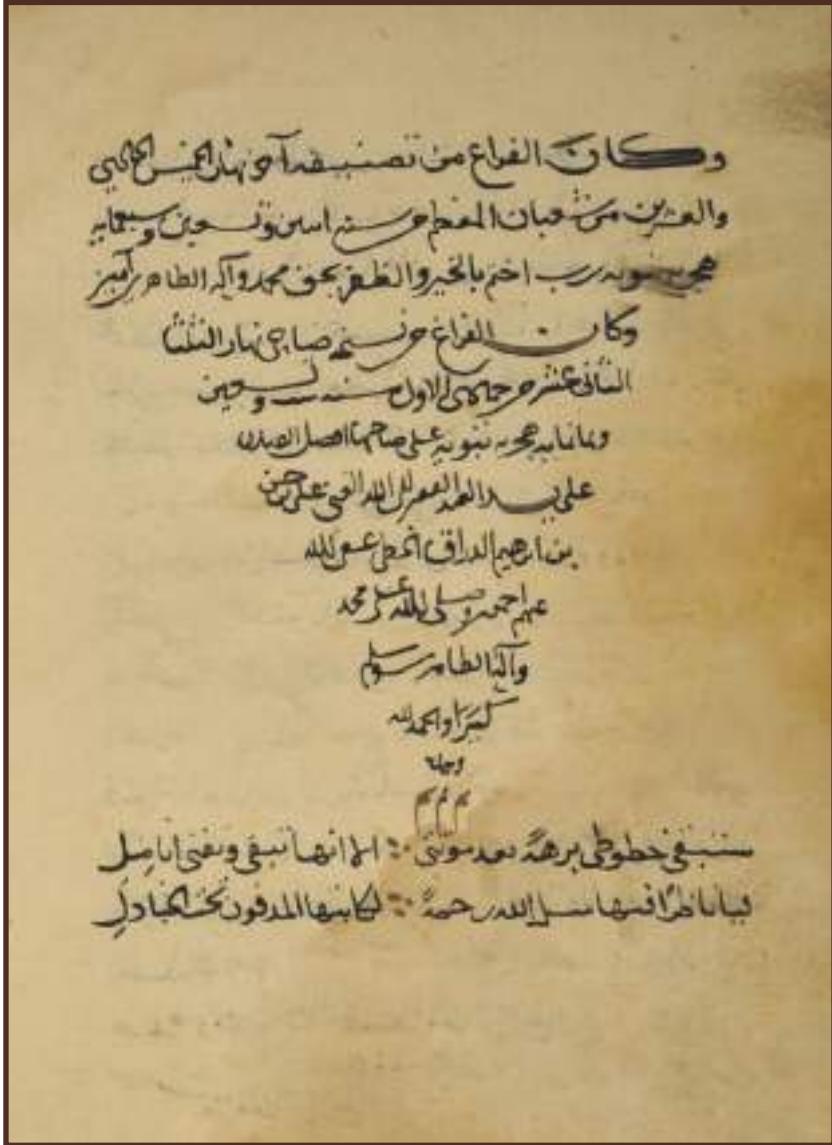 وكان الفراغ من تصنيفه آخر نهار الخميس
والعشرين من شعبان المعظم من سنة اثنين وتسعين وسبعمايه
هجريه نبويه رب اختم بالخير والظفر بحق محمد وآله الطاهرين آمين
وكان الفراغ من نسخه صباحي نهار الثلثا
الثاني عشر من جمادى الاول سنة وتسعين
وثمانمايه هجريه نبويه على صاحبها افضل الصلاة
على يد العبد الفقير الى الله الغني علي بن حسن
بن ابرهيم عفى الله
عنهم اجمعين وصلى الله على محمد
وآله الطاهرين وسلم
كثيرا والحمد لله
وحده
ستبقى خطوطي برهة بعد موتتي الا انها تبقى وتفنى اناملي
فيا ناظرا فيها سل الله رحمة لكاتبها المدفون تحت الجنادل